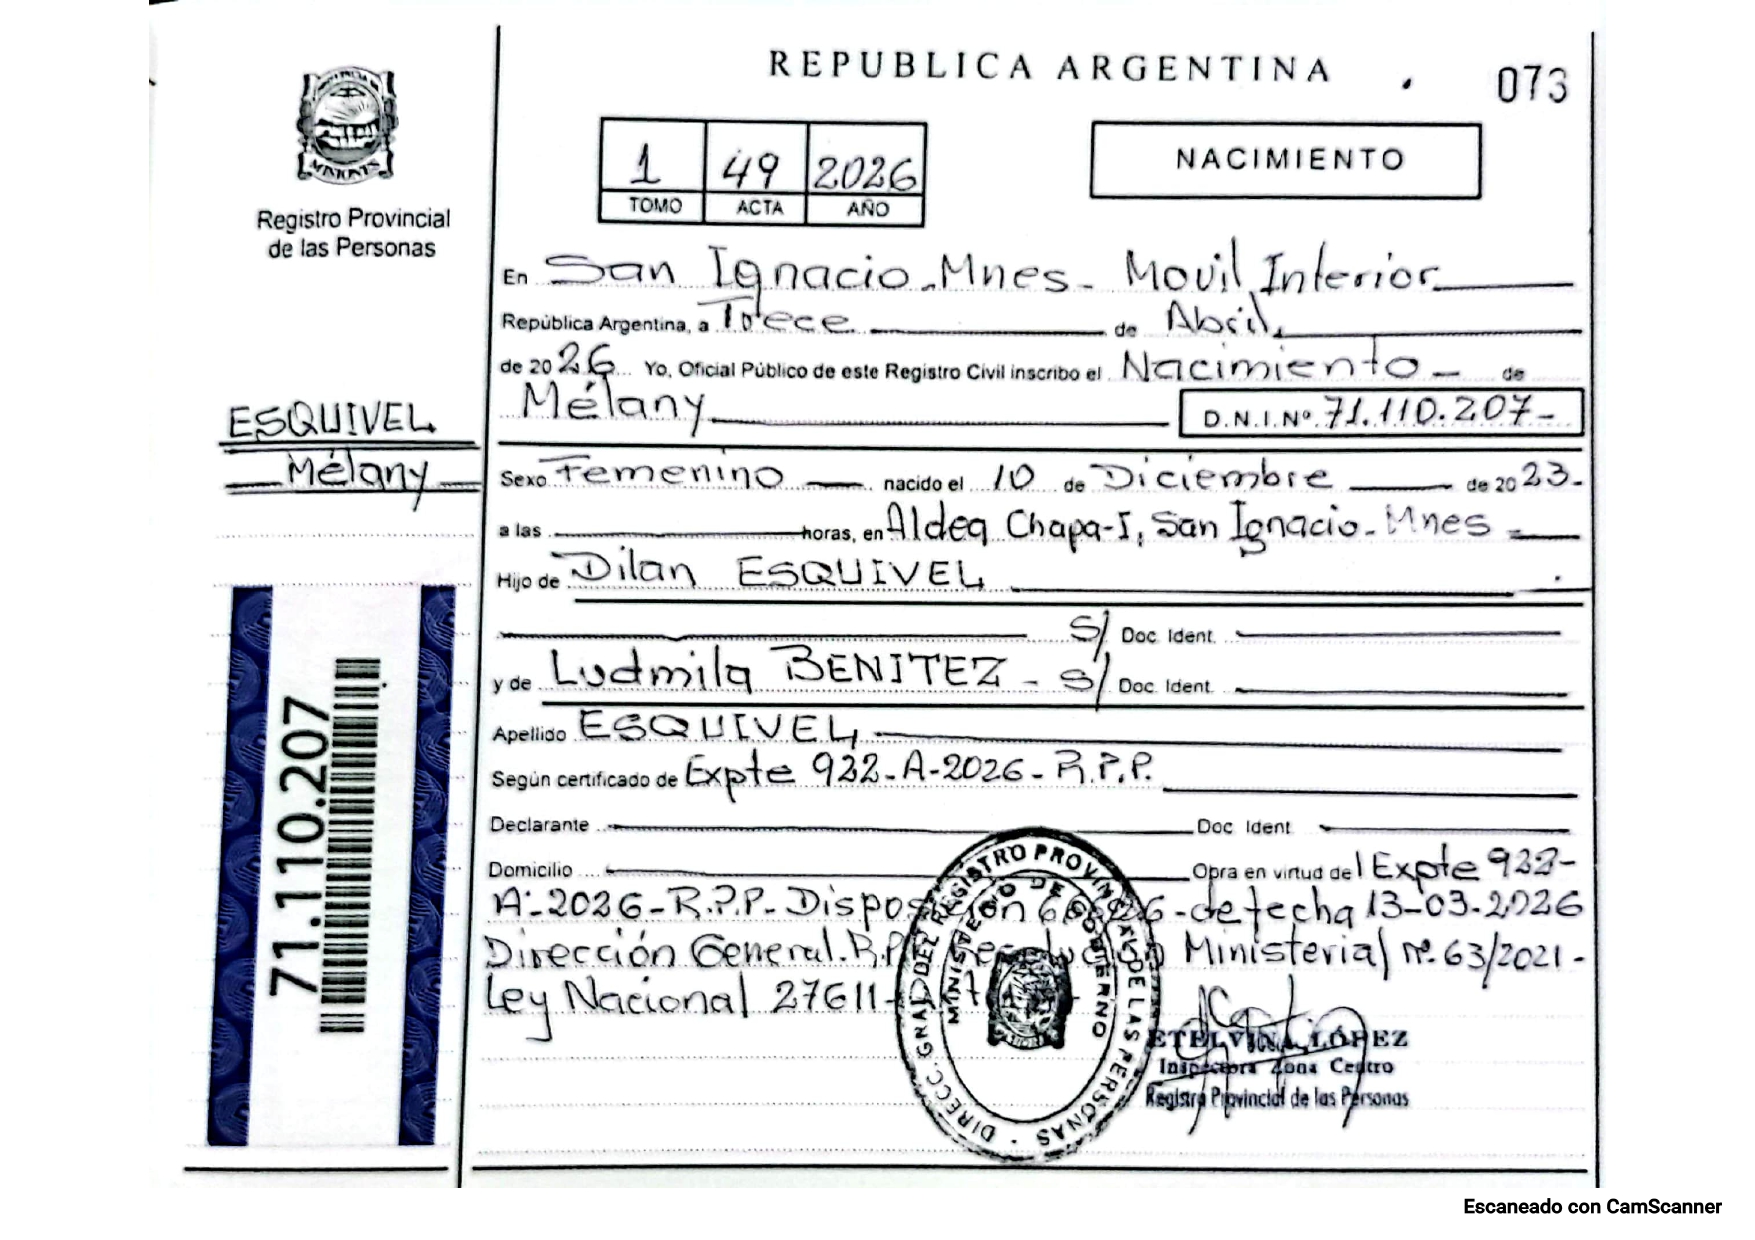 REPUBLICA ARGENTINA
073
MISIONES
Registro Provincial
de las Personas
1 49 2026
TOMO ACTA AÑO
NACIMIENTO
En San Ignacio-Mnes- Movil Interior
República Argentina, a Trece de Abril
de 2026 Yo, Oficial Público de este Registro Civil inscribo el Nacimiento - de
Mélany D.N.I.Nº 71.110.207-
ESQUIVEL
Mélany
Sexo Femenino nacido el 10 de Diciembre de 2023-
a las horas, en Aldea Chapa-I, San Ignacio-Mnes
Hijo de Dilan ESQUIVEL
S/ Doc. Ident.
y de Ludmila BENITEZ - S/ Doc. Ident.
Apellido ESQUIVEL
Según certificado de Expte 922-A-2026-R.P.P.
Declarante Doc Ident
Domicilio Obra en virtud del Expte 922-
A-2026-R.P.P- Disposición -de fecha 13-03-2026
Dirección General.R.P. Ministerial nº 63/2021-
Ley Nacional 27611-
71.110.207
DIRECC. GRAL DEL REGISTRO PROVINCIAL DE LAS PERSONAS
MINISTERIO DE GOBIERNO
ETELVINA LÓPEZ
Inspectora Zona Centro
Registro Provincial de las Personas
Escaneado con CamScanner